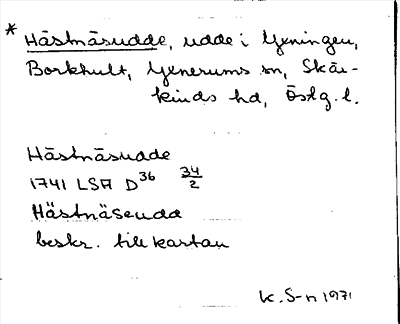 * Hästnäsudde, udde i Yxningen,
Borkhult, Yxnerums sn, Skär-
kinds hd, Östg. l.
Hästnäsudde
1741 LSA D36 34/2
Hästnäseudd
beskr. till kartan
K. S-n 1971